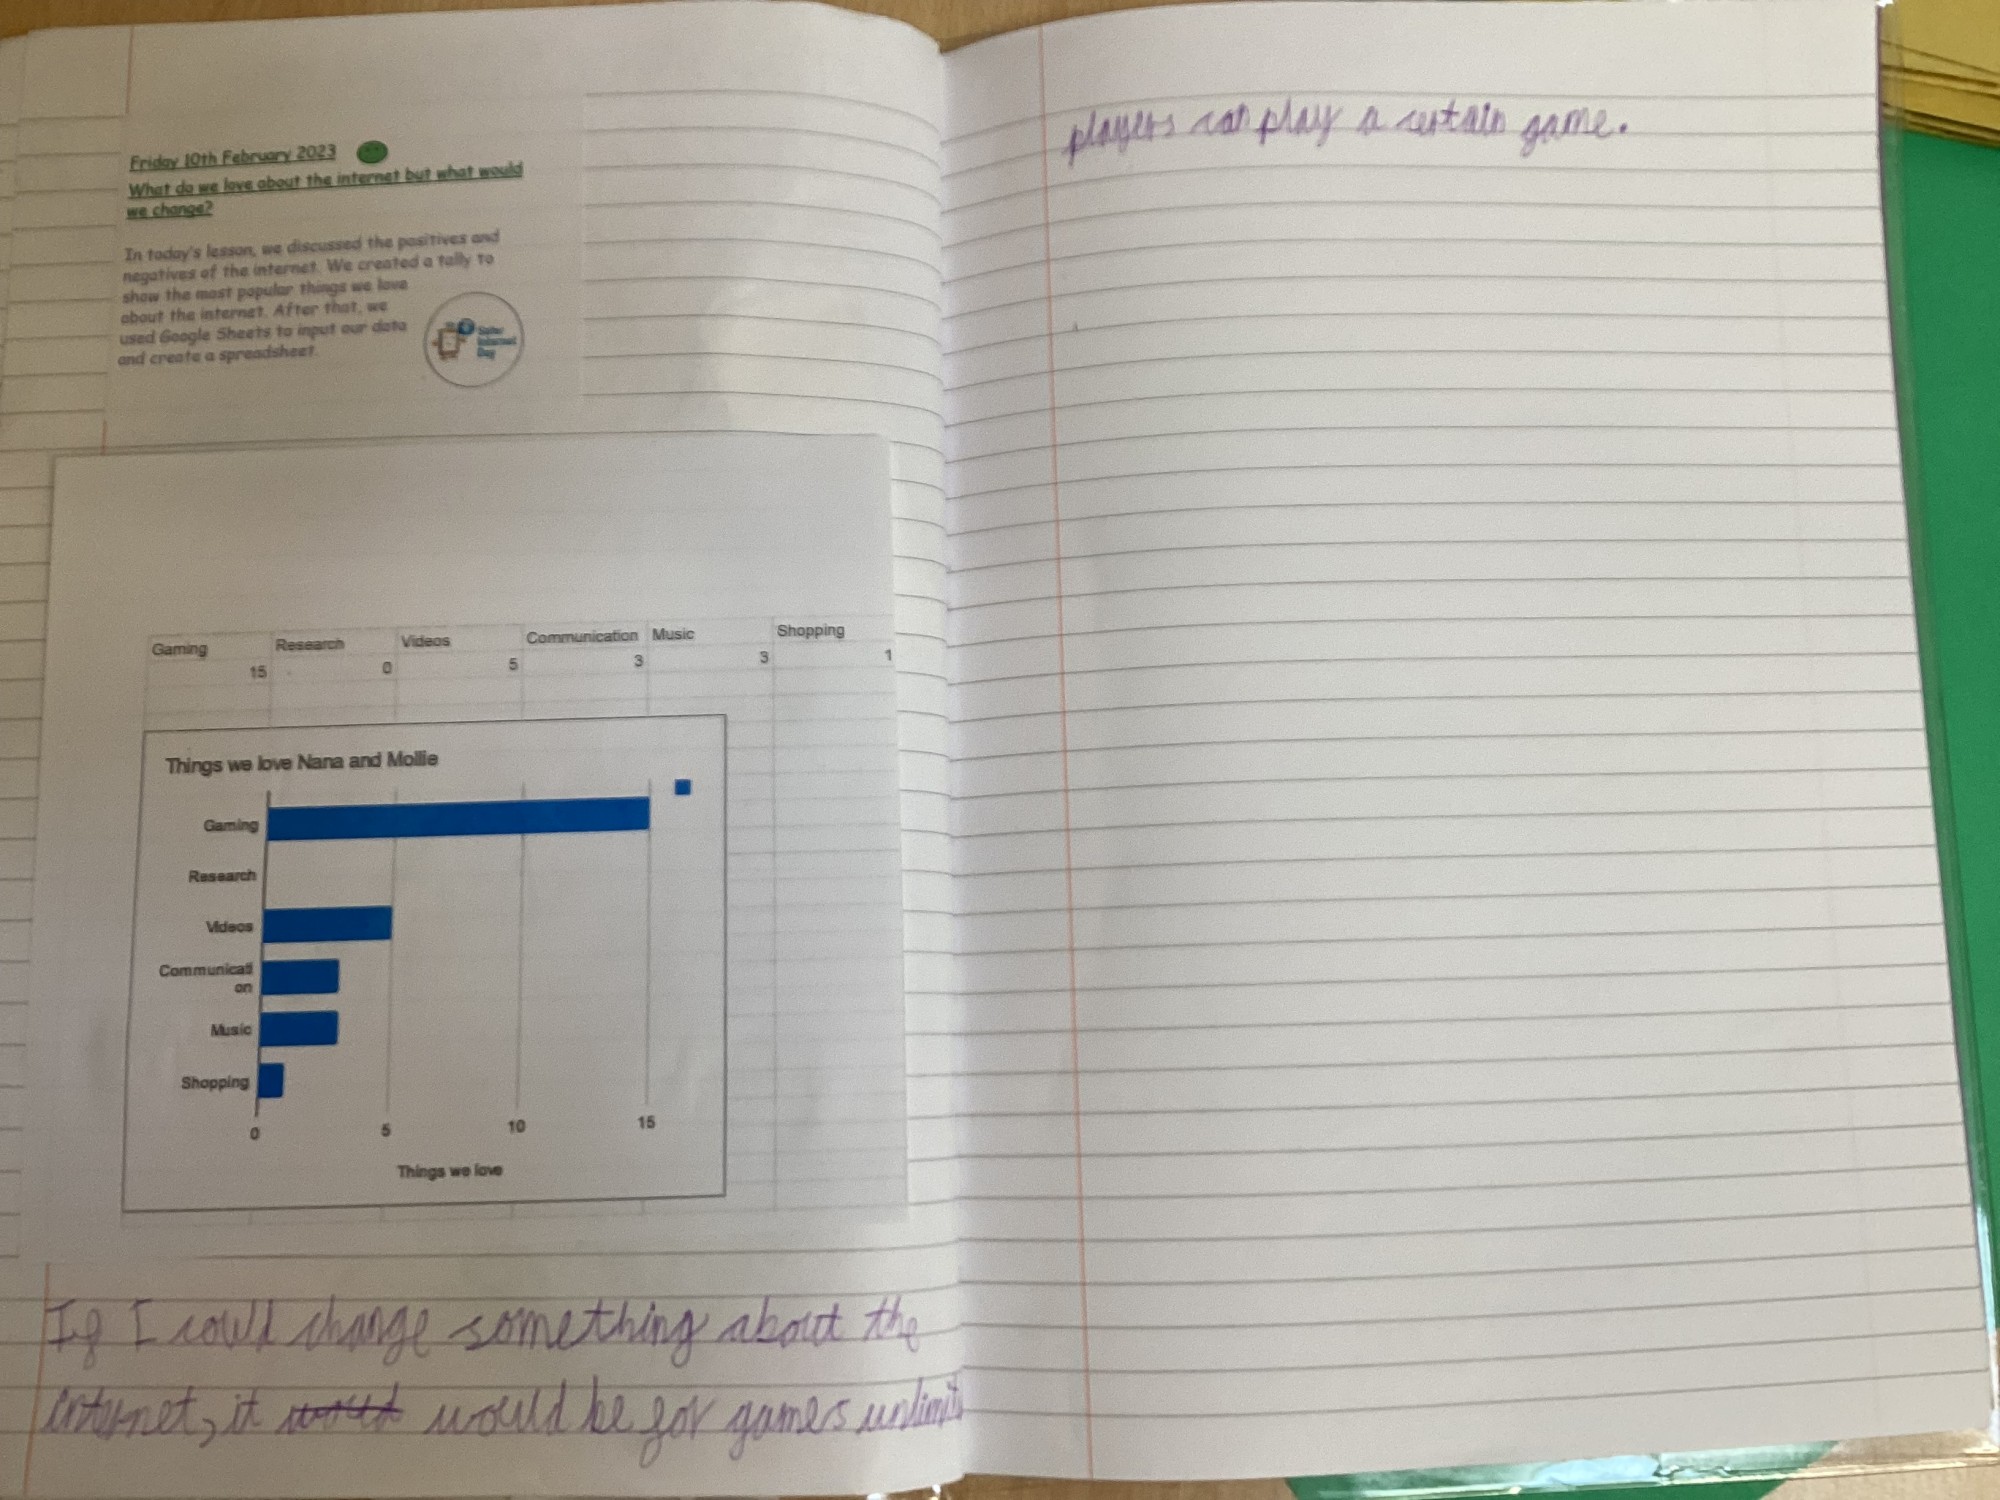 Friday 10th February 2023
What do we love about the internet but what would
we change?
In today's lesson, we discussed the positives and
negatives of the internet. We created a tally to
show the most popular things we love
about the internet. After that, we
used Google Sheets to input our data
and create a spreadsheet.
Safer
Internet
Day
Gaming Research Videos Communication Music Shopping
15 0 5 3 3 1
Things we love Nana and Mollie
Gaming
Research
Videos
Communicati
on
Music
Shopping
0 5 10 15
Things we love
If I could change something about the
internet, it would be for games unlimit
players can play a certain game.